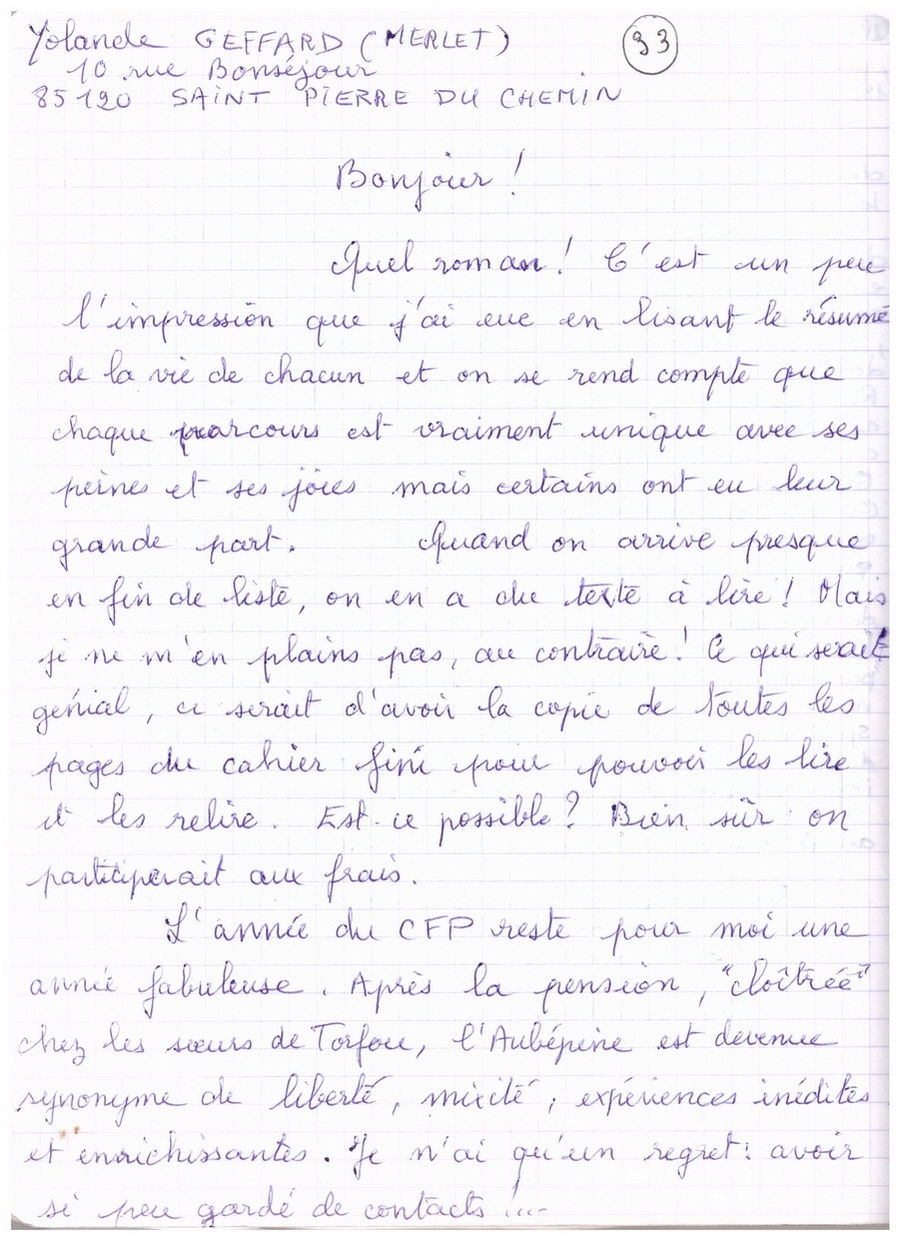 Yolande GEFFARD (MERLET) 93
10 rue Bonséjour
85120 SAINT PIERRE DU CHEMIN
Bonjour !
Quel roman ! C'est un peu
l'impression que j'ai eue en lisant le résumé
de la vie de chacun et on se rend compte que
chaque parcours est vraiment unique avec ses
peines et ses joies mais certains ont eu leur
grande part. Quand on arrive presque
en fin de liste, on en a du texte à lire ! Mais
je ne m'en plains pas, au contraire ! Ce qui serait
génial, ce serait d'avoir la copie de toutes les
pages du cahier fini pour pouvoir les lire
et les relire. Est-ce possible ? Bien sûr on
participerait aux frais.
L'année du CFP reste pour moi une
année fabuleuse. Après la pension, "cloîtrée"
chez les sœurs de Torfou, l'Aubépine est devenue
synonyme de liberté, mixité, expériences inédites
et enrichissantes. Je n'ai qu'un regret : avoir
si peu gardé de contacts !...